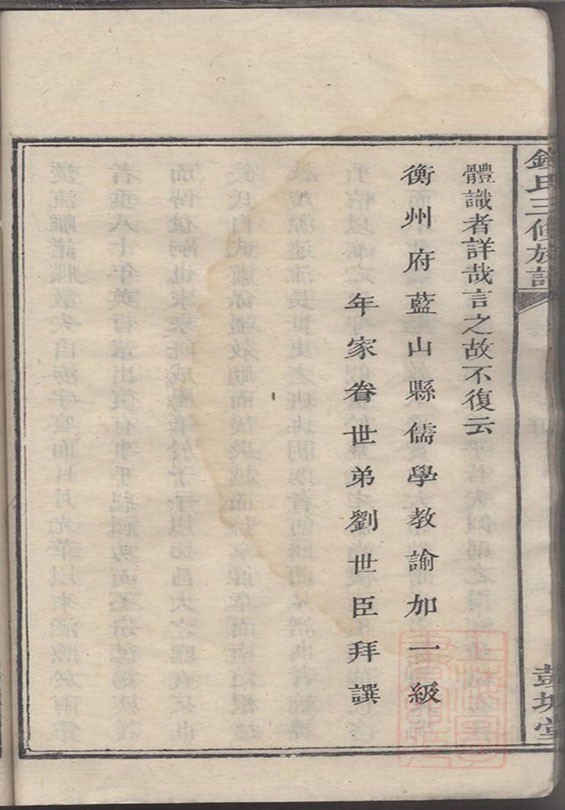 氏三修族譜
堂
體識者詳哉言之故不復云
衡州府藍山縣儒學教諭加一級
年家眷世弟劉世臣拜譔